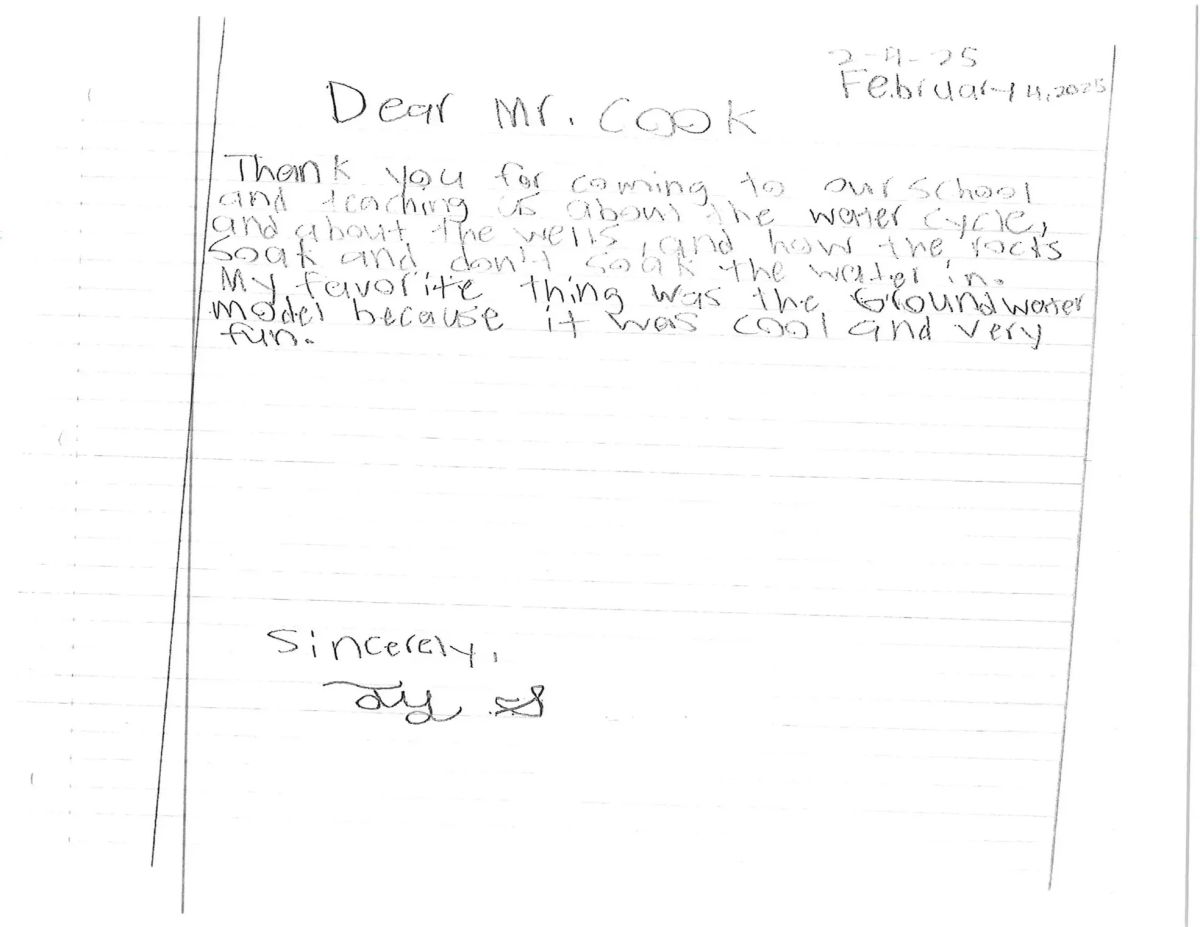 2-4-25
February 4, 2025
Dear Mr. Cook
Thank you for coming to our school
and teaching us about the water cycle,
and about the wells, and how the rocks
soak and don't soak the water in.
My favorite thing was the Groundwater
model because it was cool and very
fun.
Sincerely,
Ty S